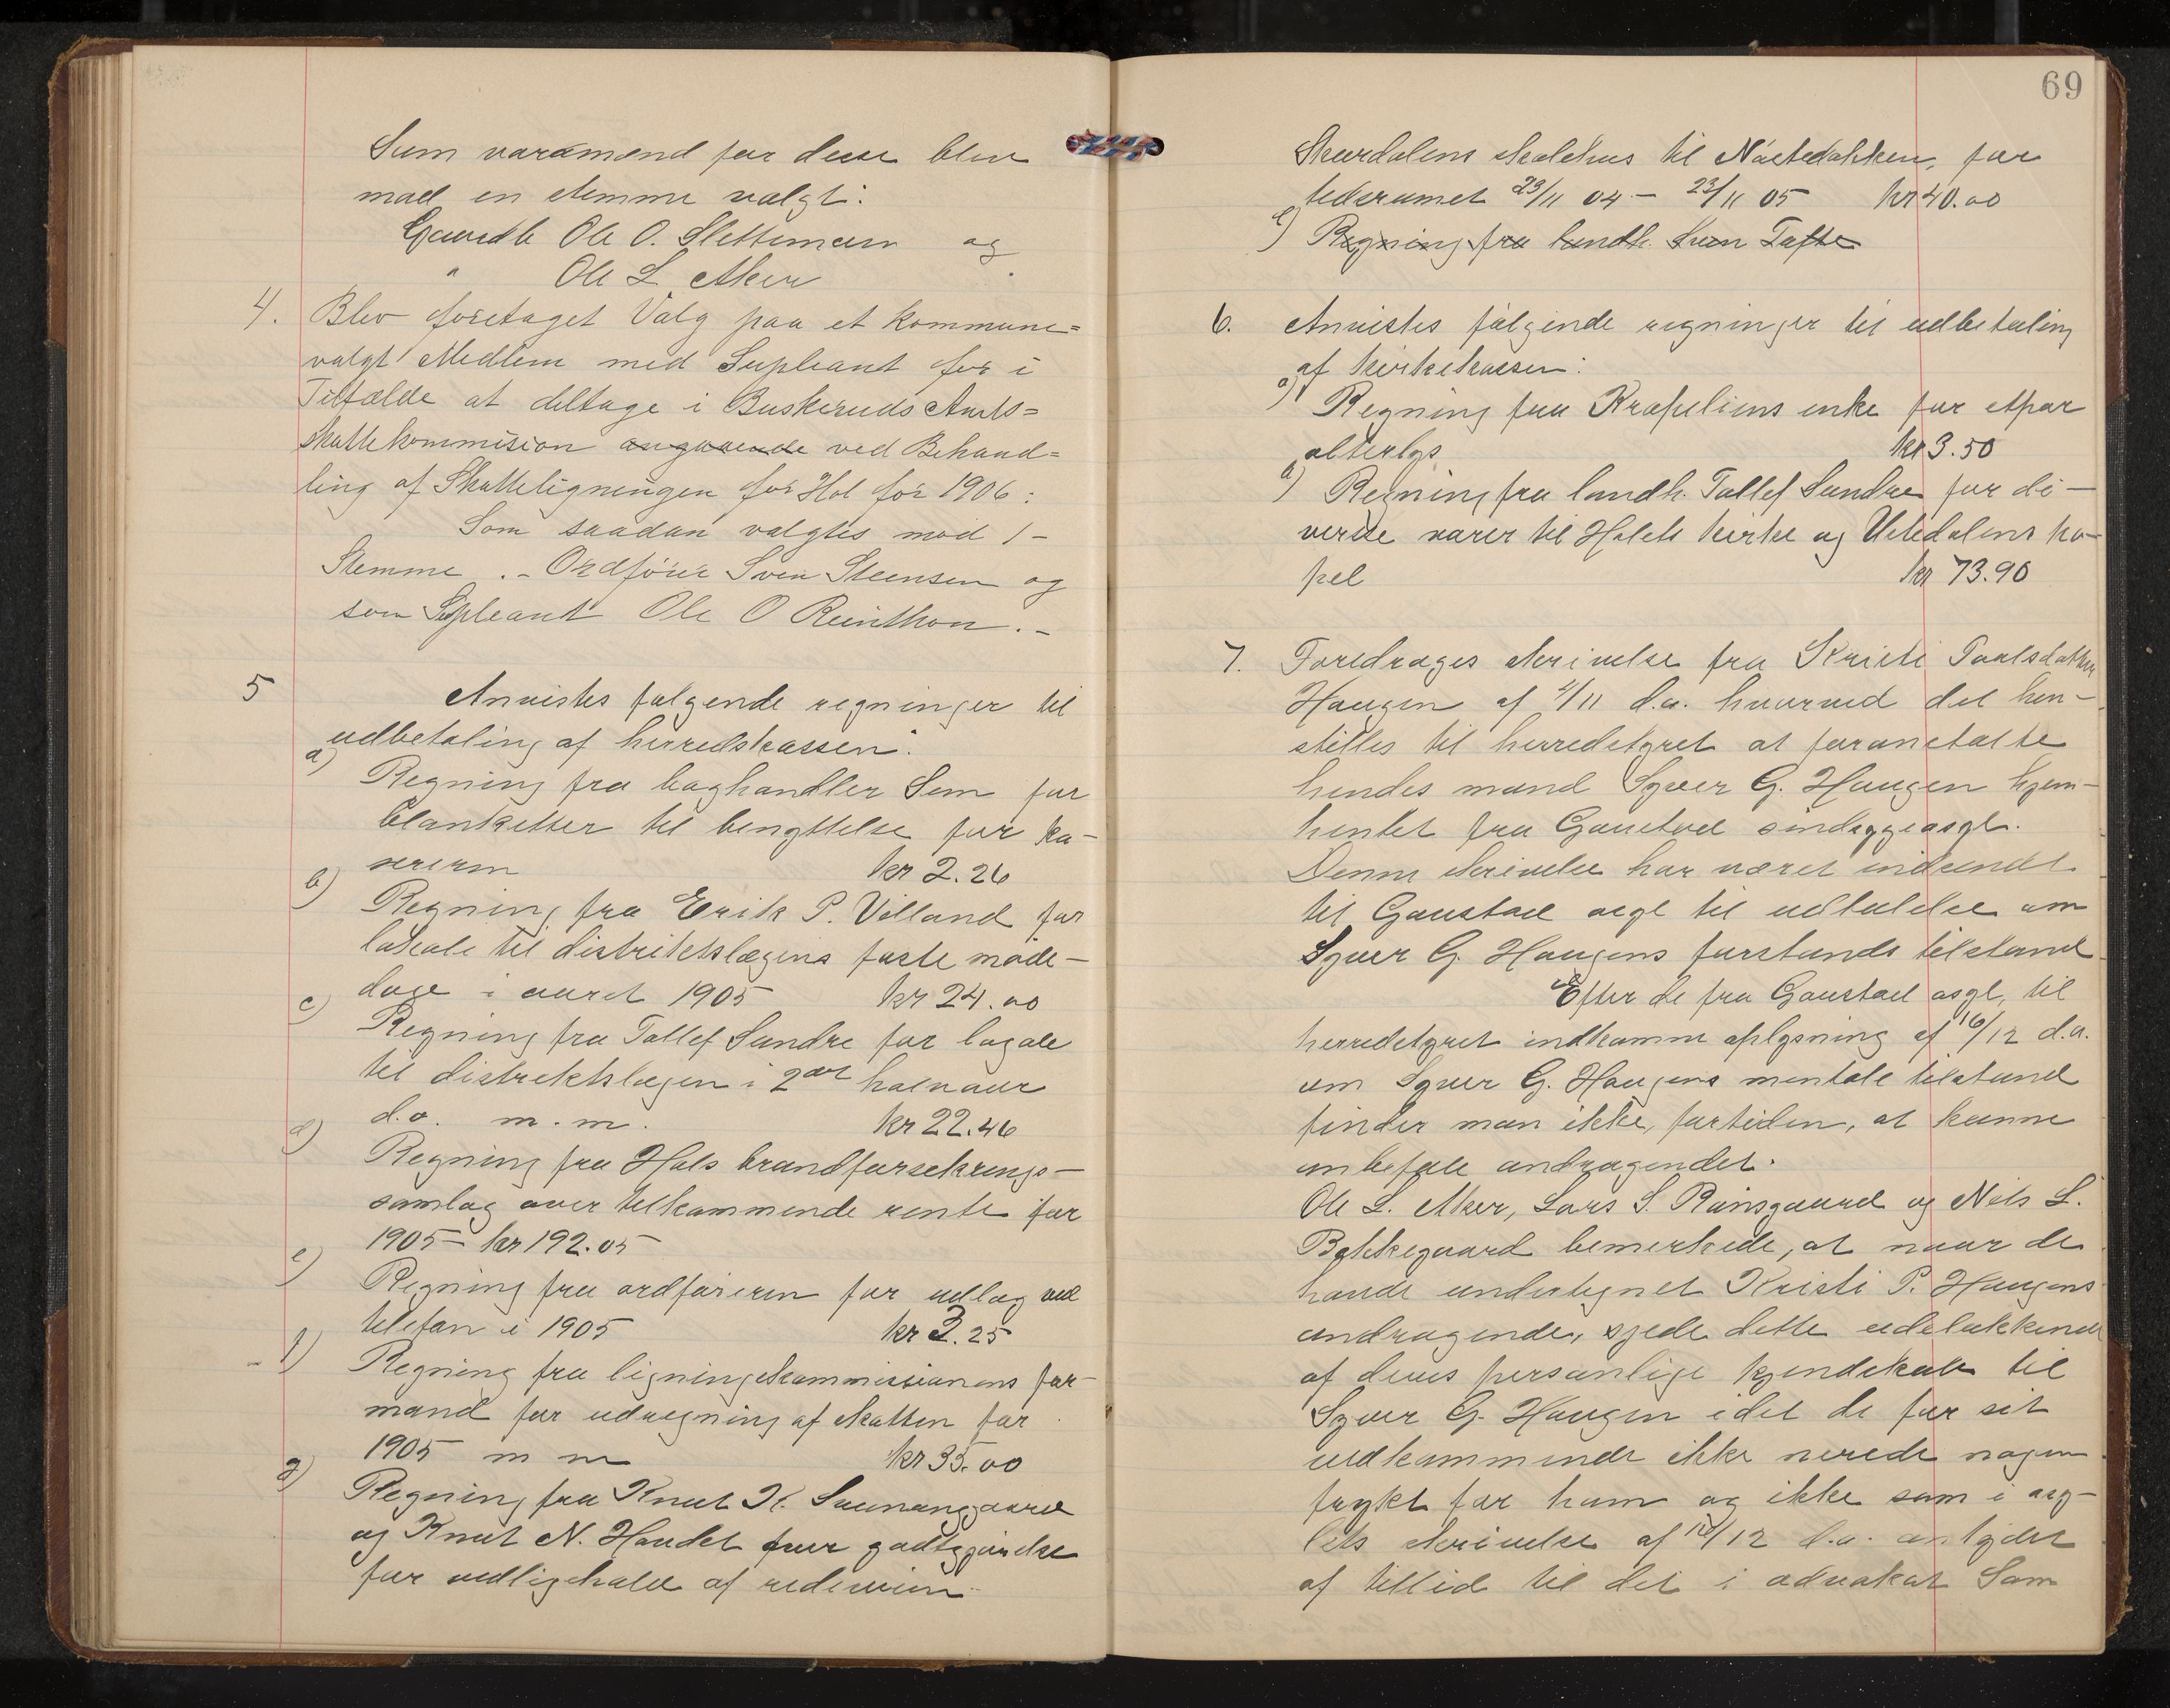 Sum varamænd for disse blev
mad en stemme valgt:
Gaardb Ole O. Slettemoen og
" Ole L. Aker
4. Blev foretaget Valg paa et kommune=
valgt Medlem med Supleant for i
Tilfælde at deltage i Buskeruds Amts=
skattekommision angaaende ved Behand=
ling af Skatteligningen for Hol for 1906:
Som saadan valgtes mod 1 -
Stemme .- Ordfører Sven Steensen og
som Supleant Ole O Reinthon.-
5 Anvistes følgende regninger til
udbetaling af herredskassen:
a) Regning fra boghandler Sem for
blanketter til benyttelse for ka-
sereren kr 2.26
b) Regning fra Erik P. Villand for
lokale til distriktslægens faste møde-
dage i aaret 1905 kr 24.00
c) Regning fra Tollef Sundre for logale
til distriktslægen i 2det halvaar
d.a. m.m. kr 22.46
d) Regning fra Hols brandforsekrings-
samlag over tilkommende rente for
1905 - kr 192.05
e) Regning fra ordføreren for udlæg ved
telefon i 1905 kr 3.25
f) Regning fra ligningskommissionens for-
mand for udregning af skatten for
1905 m m kr 35.00
g) Regning fra Knut K.
og Knut N. for godtgjørelse
for vedligehold af
69
Skurdalens skolehus til for
tidsrumet 23/11 04 - 23/11 05 kr 40.00
Regning fra landh. Tufte
6. Anvistes følgende regninger til udbetaling
af kirkekassen:
a) Regning fra Krapeliens enke for etpar
alterlys kr 3.50
b) Regning fra landh. Tollef Sundre for di-
verse varer til Hols kirke og Ustedalens ka-
pel kr 73.90
7. Foredroges skrivelse fra Kristi Paalsdatter
Haugen af 4/11 d.a. hvorved det hen-
stilles til herredstyret at foranstalte
hendes mand Syver G. Haugen hjem-
hentet fra Gaustad sindsygeasyl.
Denne skrivelse har været indsendt
til Gaustad asyl til udtalelse om
Syver G. Haugens forstands tilstand
Efter de fra Gaustad asyl, til
herredstyret indkomne oplysning af 16/12 d.a.
om Syver G. Haugens mentale tilstand
finder man ikke, fortiden, at kunne
anbefale andragendet.
Ole L. Aker, Lars S. Raunsgaard og Nils L.
Bakkegaard bemerkede, at naar de
havde undertegnet Kristi P. Haugens
andragende, sjede dette udelukkende
af deres personlige kjendskab til
Syver G. Haugen idet de for sit
vedkommende ikke nerede nogen
frykt for ham og ikke som i asy-
lets skrivelse af 16/12 d.a. antydet
af tillid til det i advokat Sam